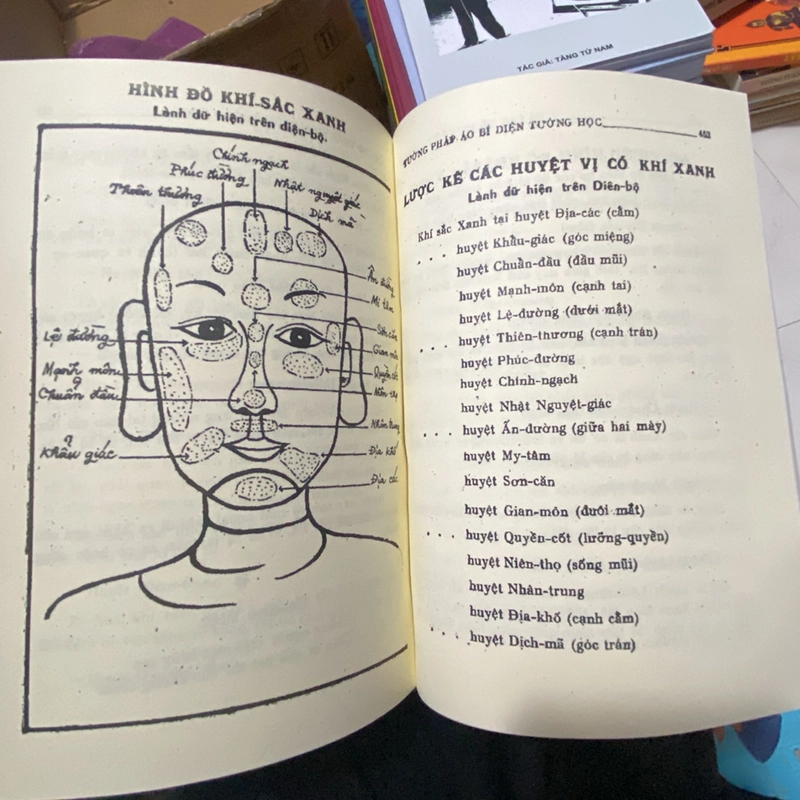 TÁC GIẢ: TĂNG TỬ NAM
HÌNH ĐỒ KHÍ-SẮC XANH
Lành dữ hiện trên diện-bộ.
Chính ngạch
Phúc đường
Nhật nguyệt giác
Thiên thương
Dịch mã
Ấn đường
Mi tâm
Sơn căn
Lệ đường
Gian môn
Mạnh môn
Quyền cốt
Chuẩn đầu
Niên thọ
Nhân trung
Khẩu giác
Địa khố
Địa các
TƯỚNG PHÁP ÁO BÍ DIỆN TƯỚNG HỌC
LƯỢC KÊ CÁC HUYỆT VỊ CÓ KHÍ XANH
Lành dữ hiện trên Diên-bộ
Khí sắc Xanh tại huyệt Địa-các (cằm)
. . . huyệt Khẩu-giác (góc miệng)
huyệt Chuẩn-đầu (đầu mũi)
huyệt Mạnh-môn (cạnh tai)
huyệt Lệ-đường (dưới mắt)
. . . huyệt Thiên-thương (cạnh trán)
huyệt Phúc-đường
huyệt Chính-ngạch
huyệt Nhật Nguyệt-giác
. . . huyệt Ấn-đường (giữa hai mày)
huyệt My-tâm
huyệt Sơn-căn
huyệt Gian-môn (đuôi mắt)
. . . huyệt Quyền-cốt (lưỡng-quyền)
huyệt Niên-thọ (sống mũi)
huyệt Nhân-trung
huyệt Địa-khố (cạnh cằm)
. . . huyệt Dịch-mã (góc trán)